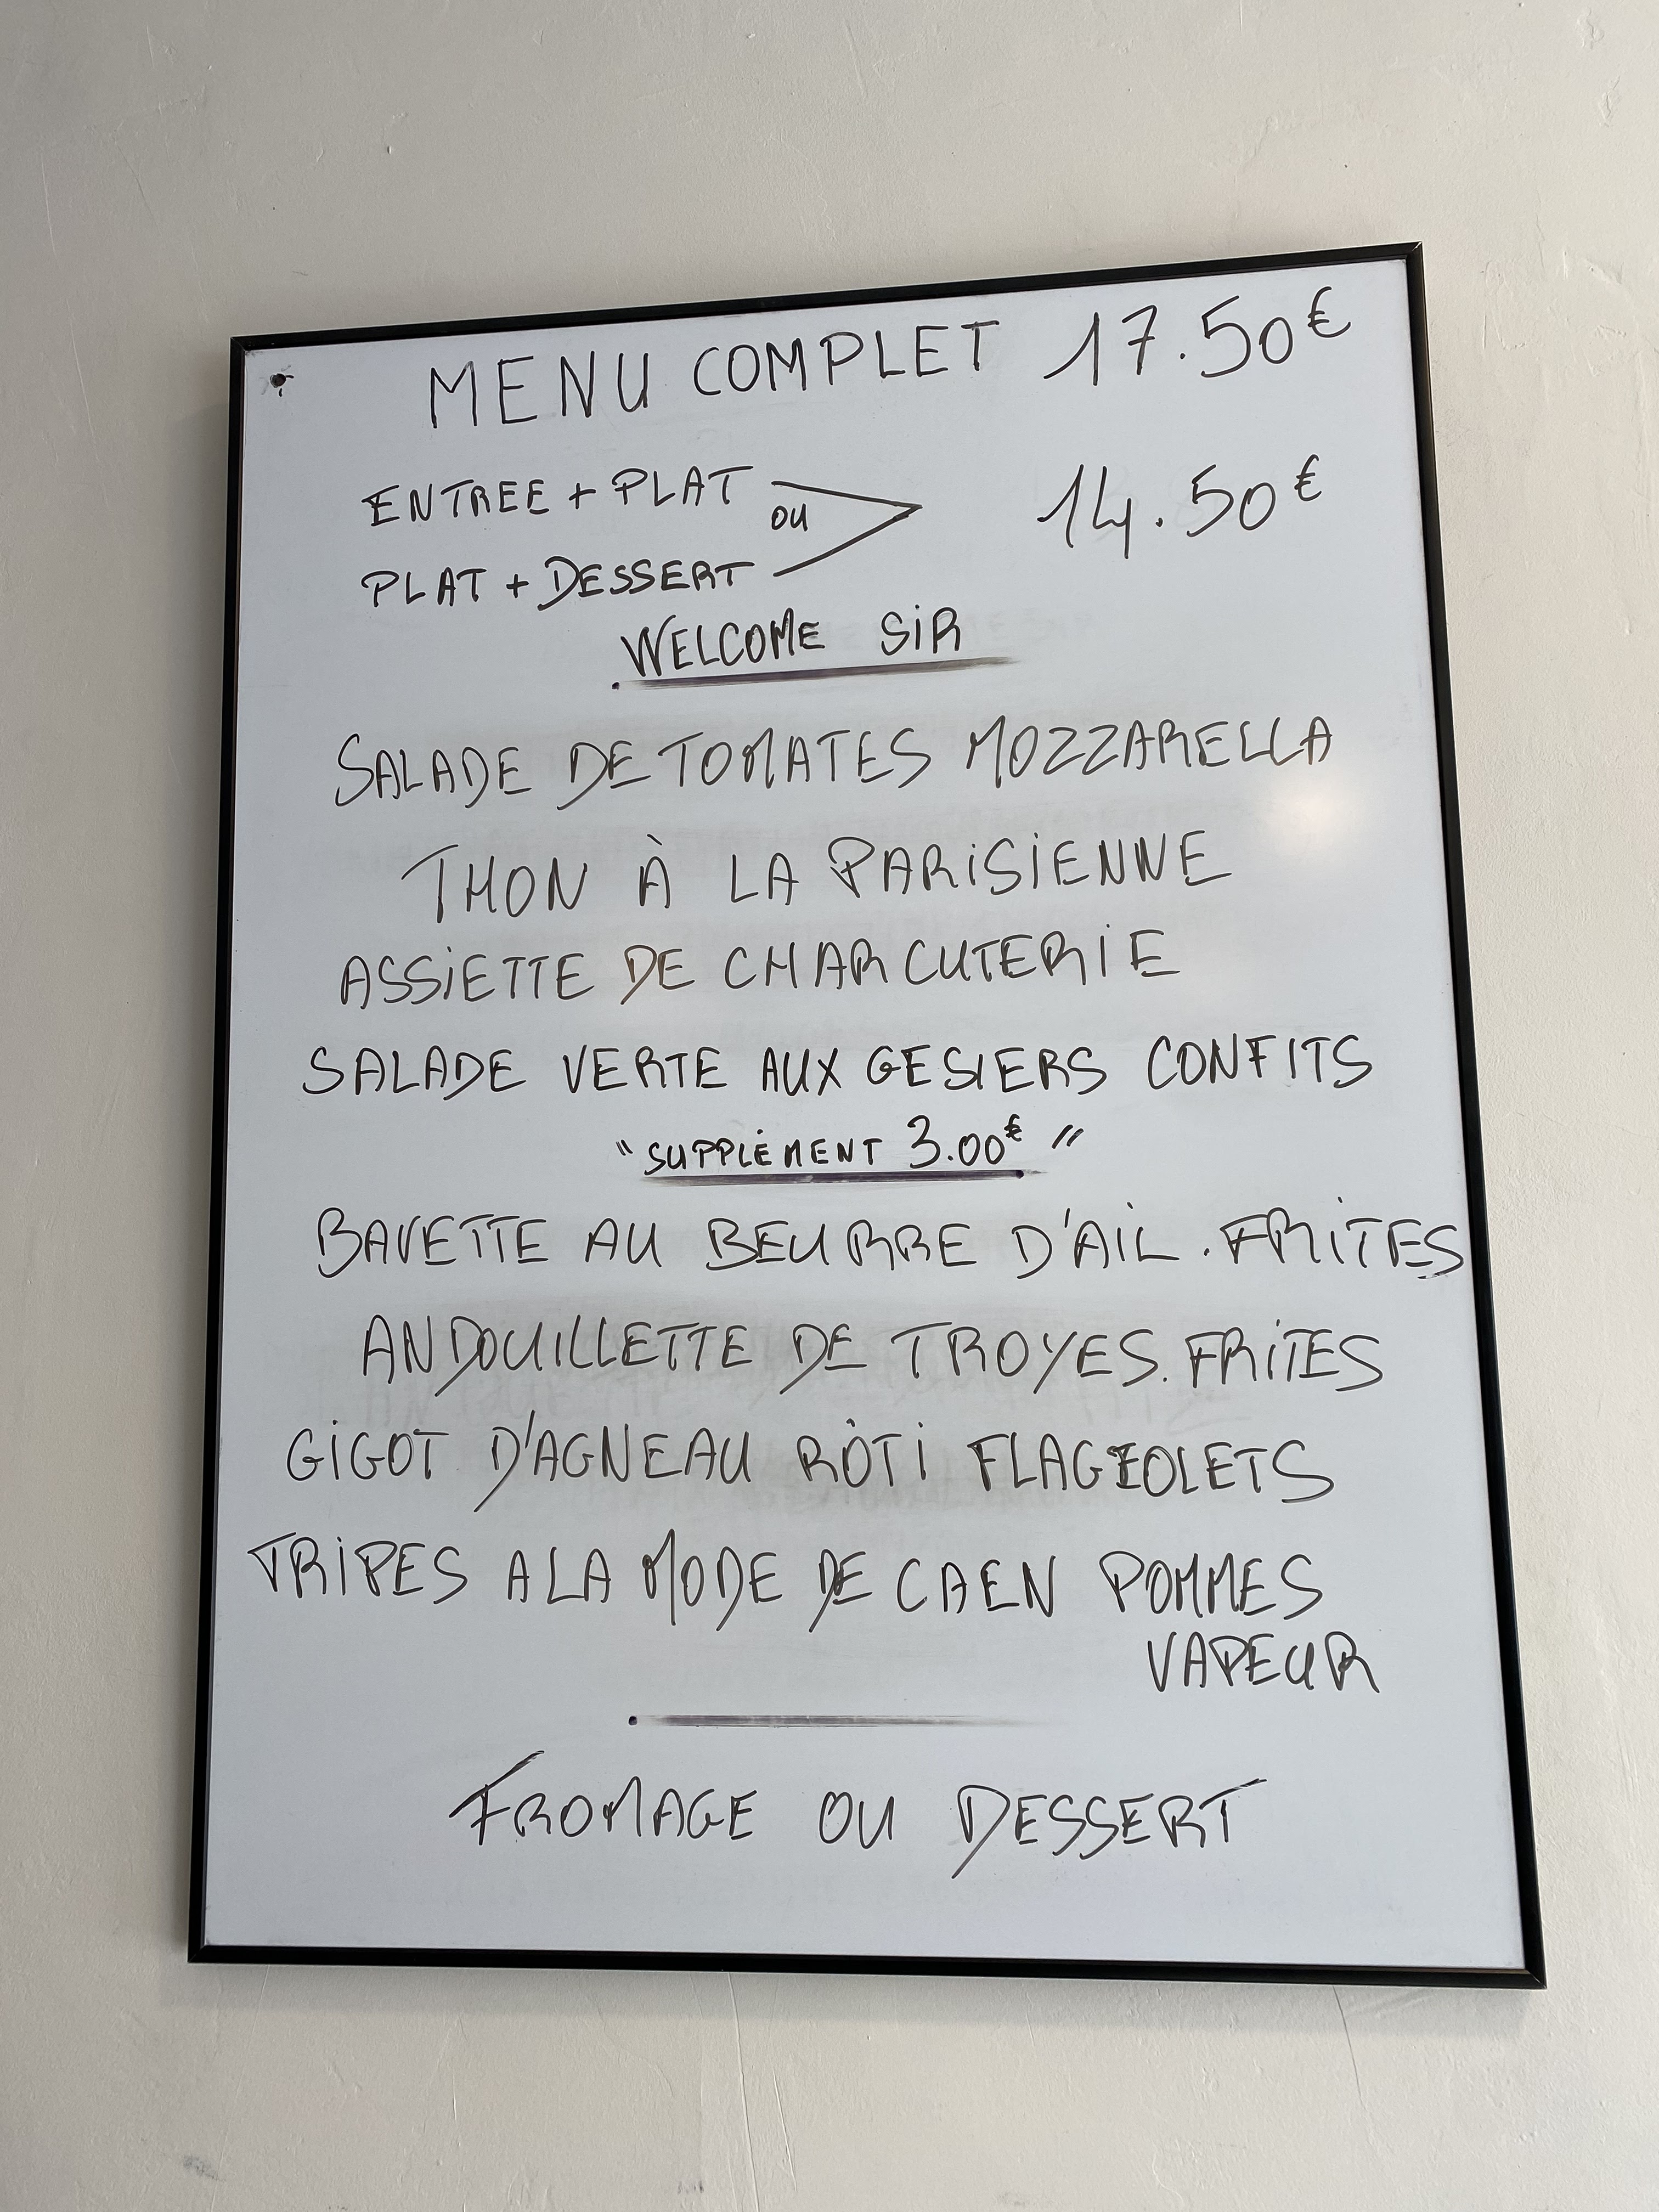 MENU COMPLET 17.50€
ENTREE + PLAT
OU
14.50€
PLAT + DESSERT
WELCOME SIR
SALADE DE TOMATES MOZZARELLA
THON À LA PARISIENNE
ASSIETTE DE CHARCUTERIE
SALADE VERTE AUX GESIERS CONFITS
"SUPPLÉMENT 3.00€"
BAVETTE AU BEURRE D'AIL. FRITES
ANDOUILLETTE DE TROYES. FRITES
GIGOT D'AGNEAU RÔTI FLAGEOLETS
TRIPES A LA MODE DE CAEN POMMES
VAPEUR
FROMAGE OU DESSERT